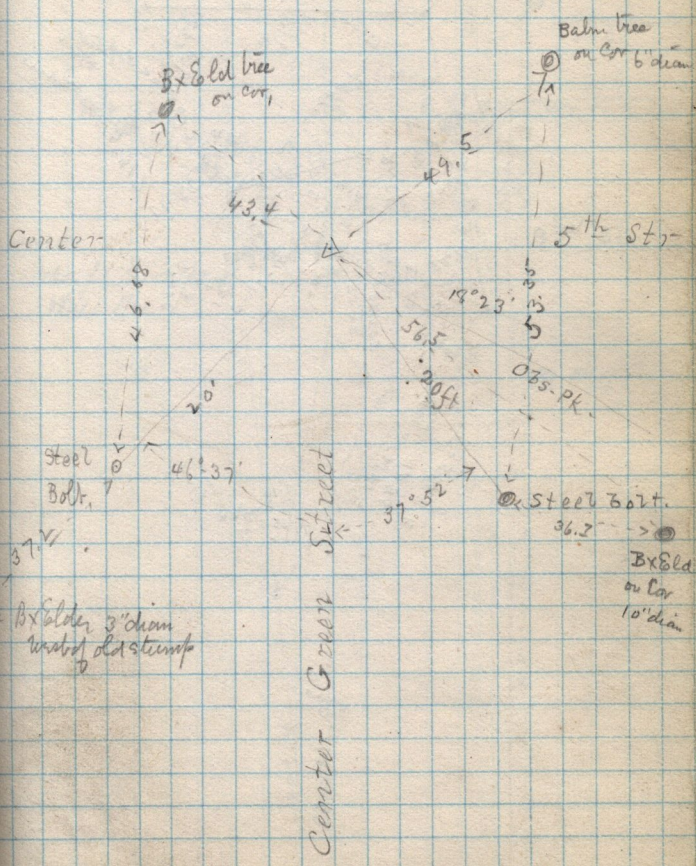 Balm tree
on Cor 6" diam
BxEld tree
on cor,
49.5
43.4
Center
5th Str
46.68
18°23'
53.35
56.5
20ft
Obs-pk.
20.
Steel
Bolt,
46°-37'
37°52'
Steel Bolt.
36.3
37.
BxEld
on Cor
10" diam
BxElder 3" diam
west of old stump
Center Green Street